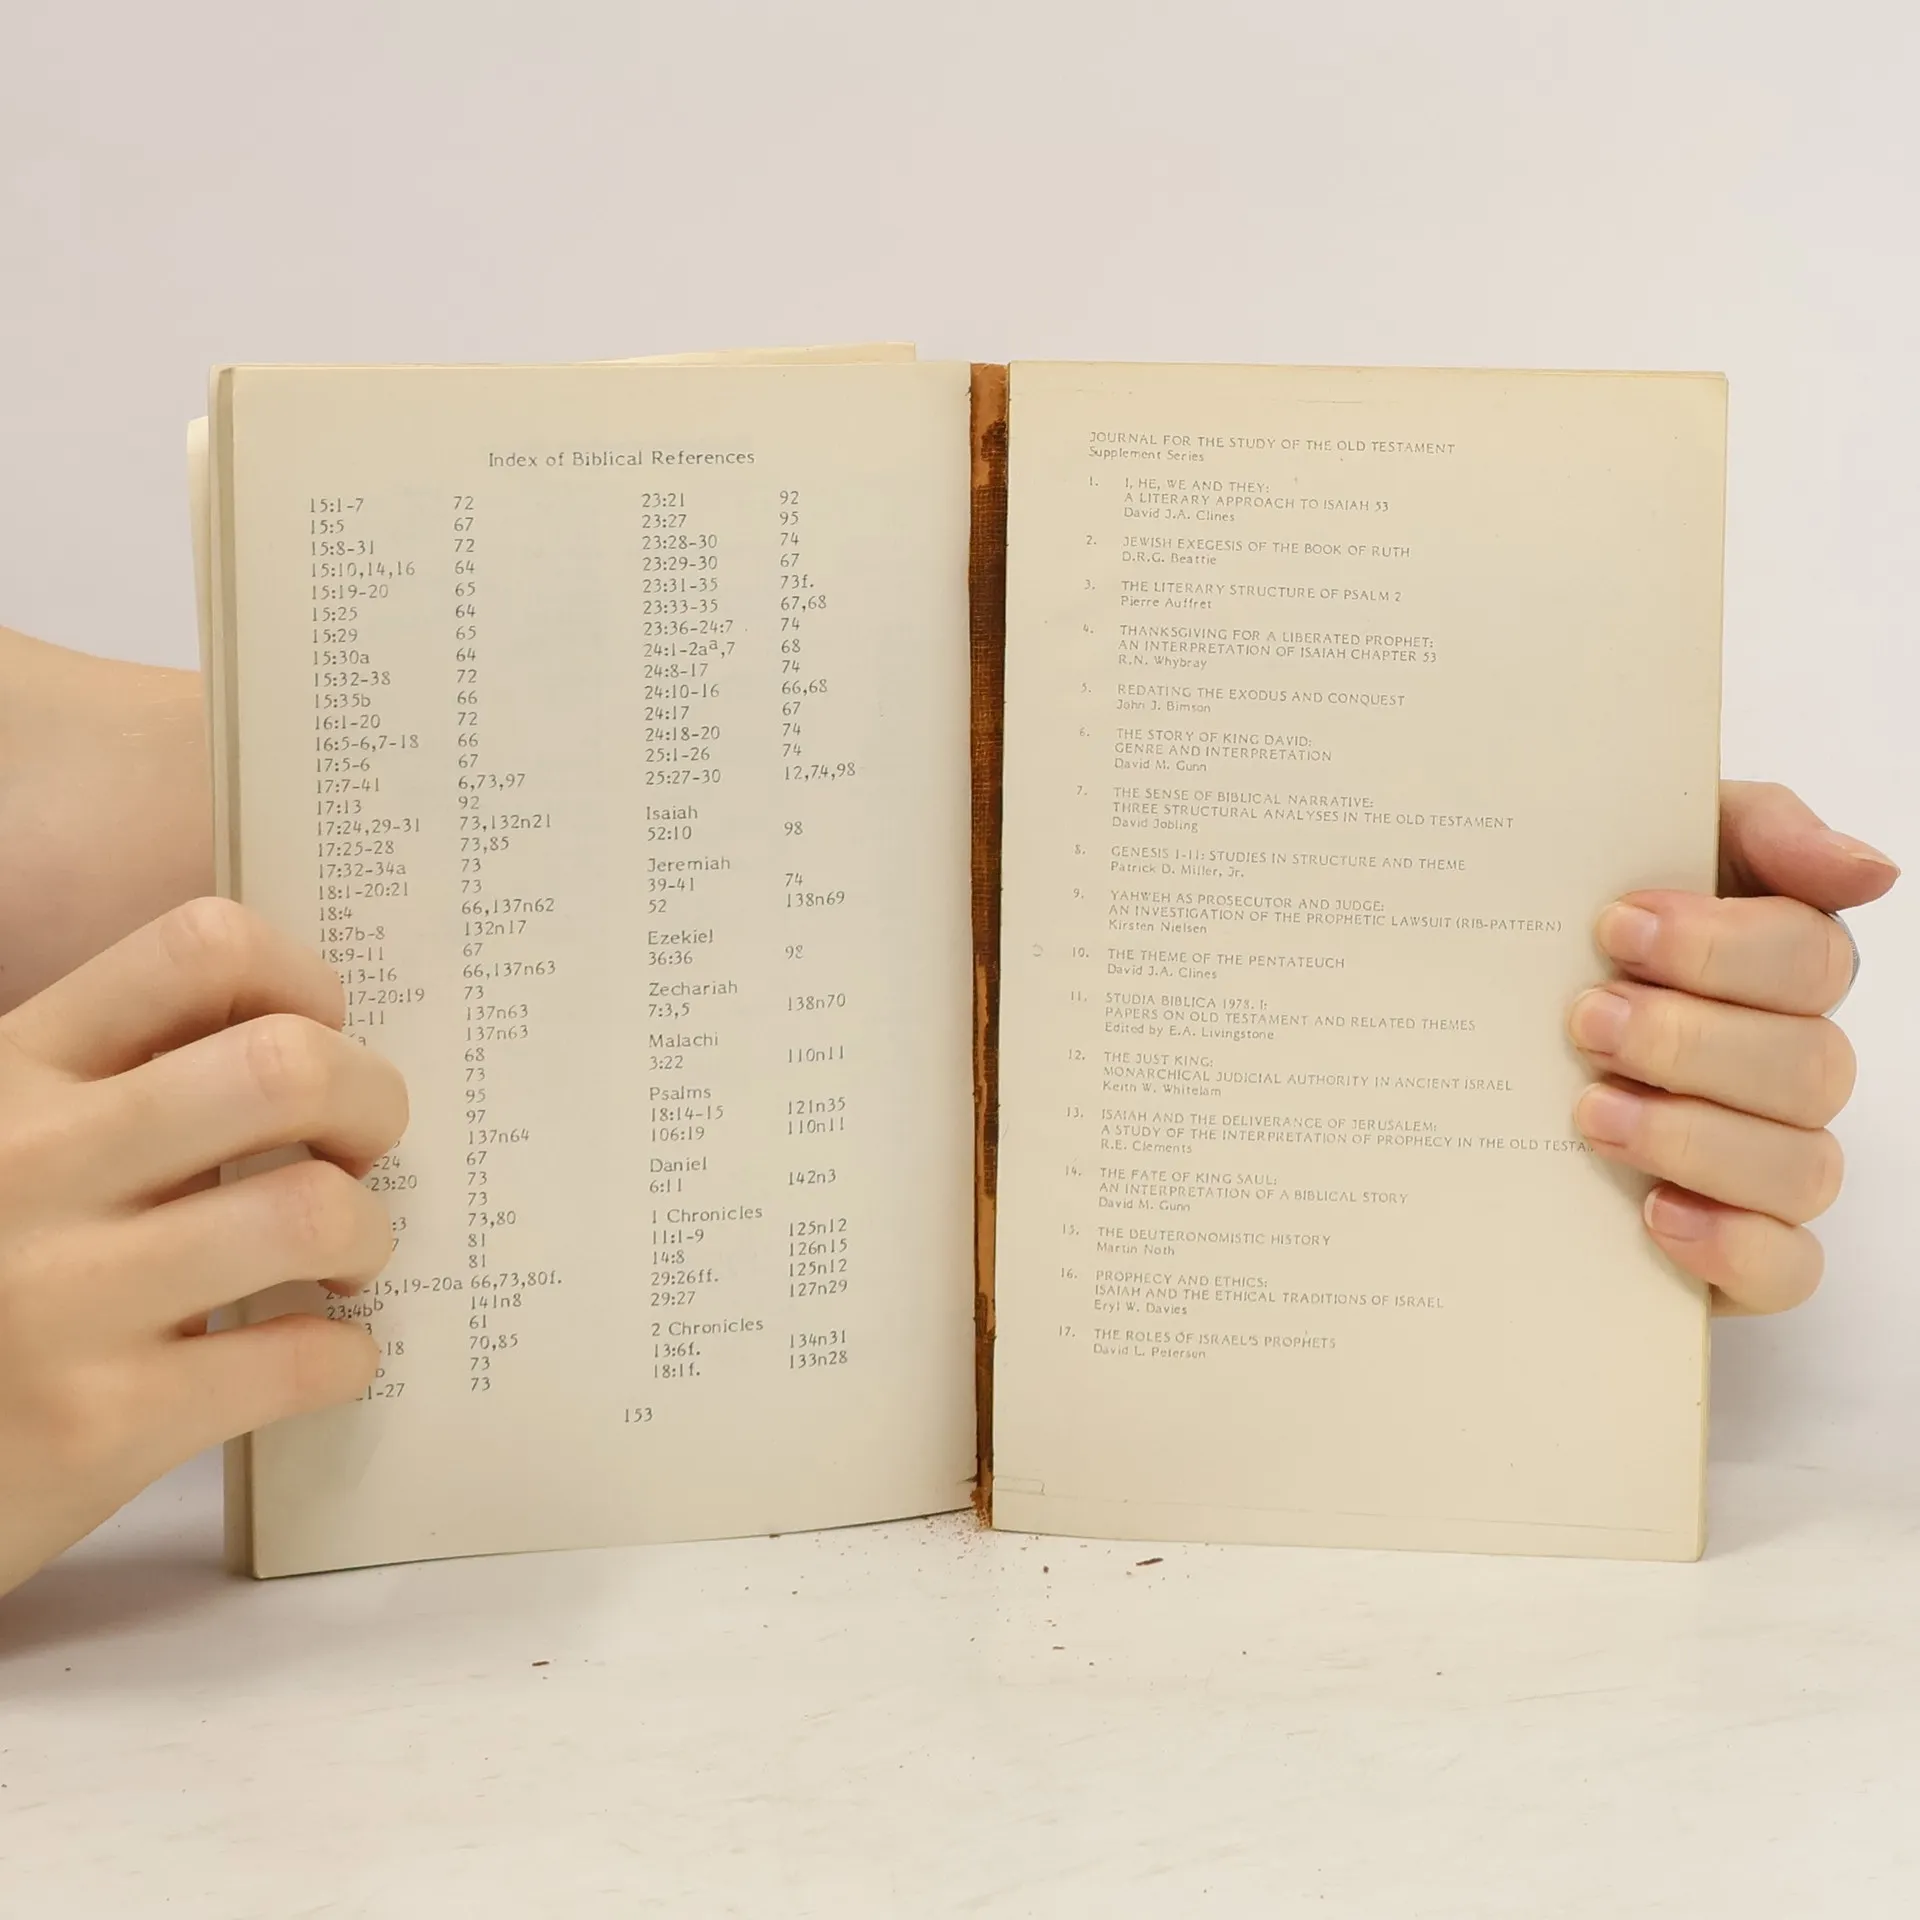 Index of Biblical References
15:1-7 72
15:5 67
15:8-31 72
15:10,14,16 64
15:19-20 65
15:25 64
15:29 65
15:30a 64
15:32-38 72
15:35b 66
16:1-20 72
16:5-6,7-18 66
17:5-6 67
17:7-41 6,73,97
17:13 92
17:24,29-31 73,132n21
17:25-28 73,85
17:32-34a 73
18:1-20:21 73
18:4 66,137n62
18:7b-8 132n17
18:9-11 67
:13-16 66,137n63
17-20:19 73
:1-11 137n63
137n63
68
73
95
97
137n64
-24 67
-23:20 73
73
:3 73,80
7 81
81
-15,19-20a 66,73,80f.
23:4bb 141n8
3 61
-18 70,85
b 73
1-27 73
23:21 92
23:27 95
23:28-30 74
23:29-30 67
23:31-35 73f.
23:33-35 67,68
23:36-24:7 74
24:1-2aa,7 68
24:8-17 74
24:10-16 66,68
24:17 67
24:18-20 74
25:1-26 74
25:27-30 12,74,98
Isaiah
52:10 98
Jeremiah
39-41 74
52 138n69
Ezekiel
36:36 98
Zechariah
7:3,5 138n70
Malachi
3:22 110n11
Psalms
18:14-15 121n35
106:19 110n11
Daniel
6:11 142n3
1 Chronicles
11:1-9 125n12
14:8 126n15
29:26ff. 125n12
29:27 127n29
2 Chronicles
13:6f. 134n31
18:1f. 133n28
153
JOURNAL FOR THE STUDY OF THE OLD TESTAMENT
Supplement Series
1. I, HE, WE AND THEY:
A LITERARY APPROACH TO ISAIAH 53
David J.A. Clines
2. JEWISH EXEGESIS OF THE BOOK OF RUTH
D.R.G. Beattie
3. THE LITERARY STRUCTURE OF PSALM 2
Pierre Auffret
4. THANKSGIVING FOR A LIBERATED PROPHET:
AN INTERPRETATION OF ISAIAH CHAPTER 53
R.N. Whybray
5. REDATING THE EXODUS AND CONQUEST
John J. Bimson
6. THE STORY OF KING DAVID:
GENRE AND INTERPRETATION
David M. Gunn
7. THE SENSE OF BIBLICAL NARRATIVE:
THREE STRUCTURAL ANALYSES IN THE OLD TESTAMENT
David Jobling
8. GENESIS 1-11: STUDIES IN STRUCTURE AND THEME
Patrick D. Miller, Jr.
9. YAHWEH AS PROSECUTOR AND JUDGE:
AN INVESTIGATION OF THE PROPHETIC LAWSUIT (RIB-PATTERN)
Kirsten Nielsen
10. THE THEME OF THE PENTATEUCH
David J.A. Clines
11. STUDIA BIBLICA 1978. I:
PAPERS ON OLD TESTAMENT AND RELATED THEMES
Edited by E.A. Livingstone
12. THE JUST KING:
MONARCHICAL JUDICIAL AUTHORITY IN ANCIENT ISRAEL
Keith W. Whitelam
13. ISAIAH AND THE DELIVERANCE OF JERUSALEM:
A STUDY OF THE INTERPRETATION OF PROPHECY IN THE OLD TESTA
R.E. Clements
14. THE FATE OF KING SAUL:
AN INTERPRETATION OF A BIBLICAL STORY
David M. Gunn
15. THE DEUTERONOMISTIC HISTORY
Martin Noth
16. PROPHECY AND ETHICS:
ISAIAH AND THE ETHICAL TRADITIONS OF ISRAEL
Eryl W. Davies
17. THE ROLES OF ISRAEL'S PROPHETS
David L. Petersen